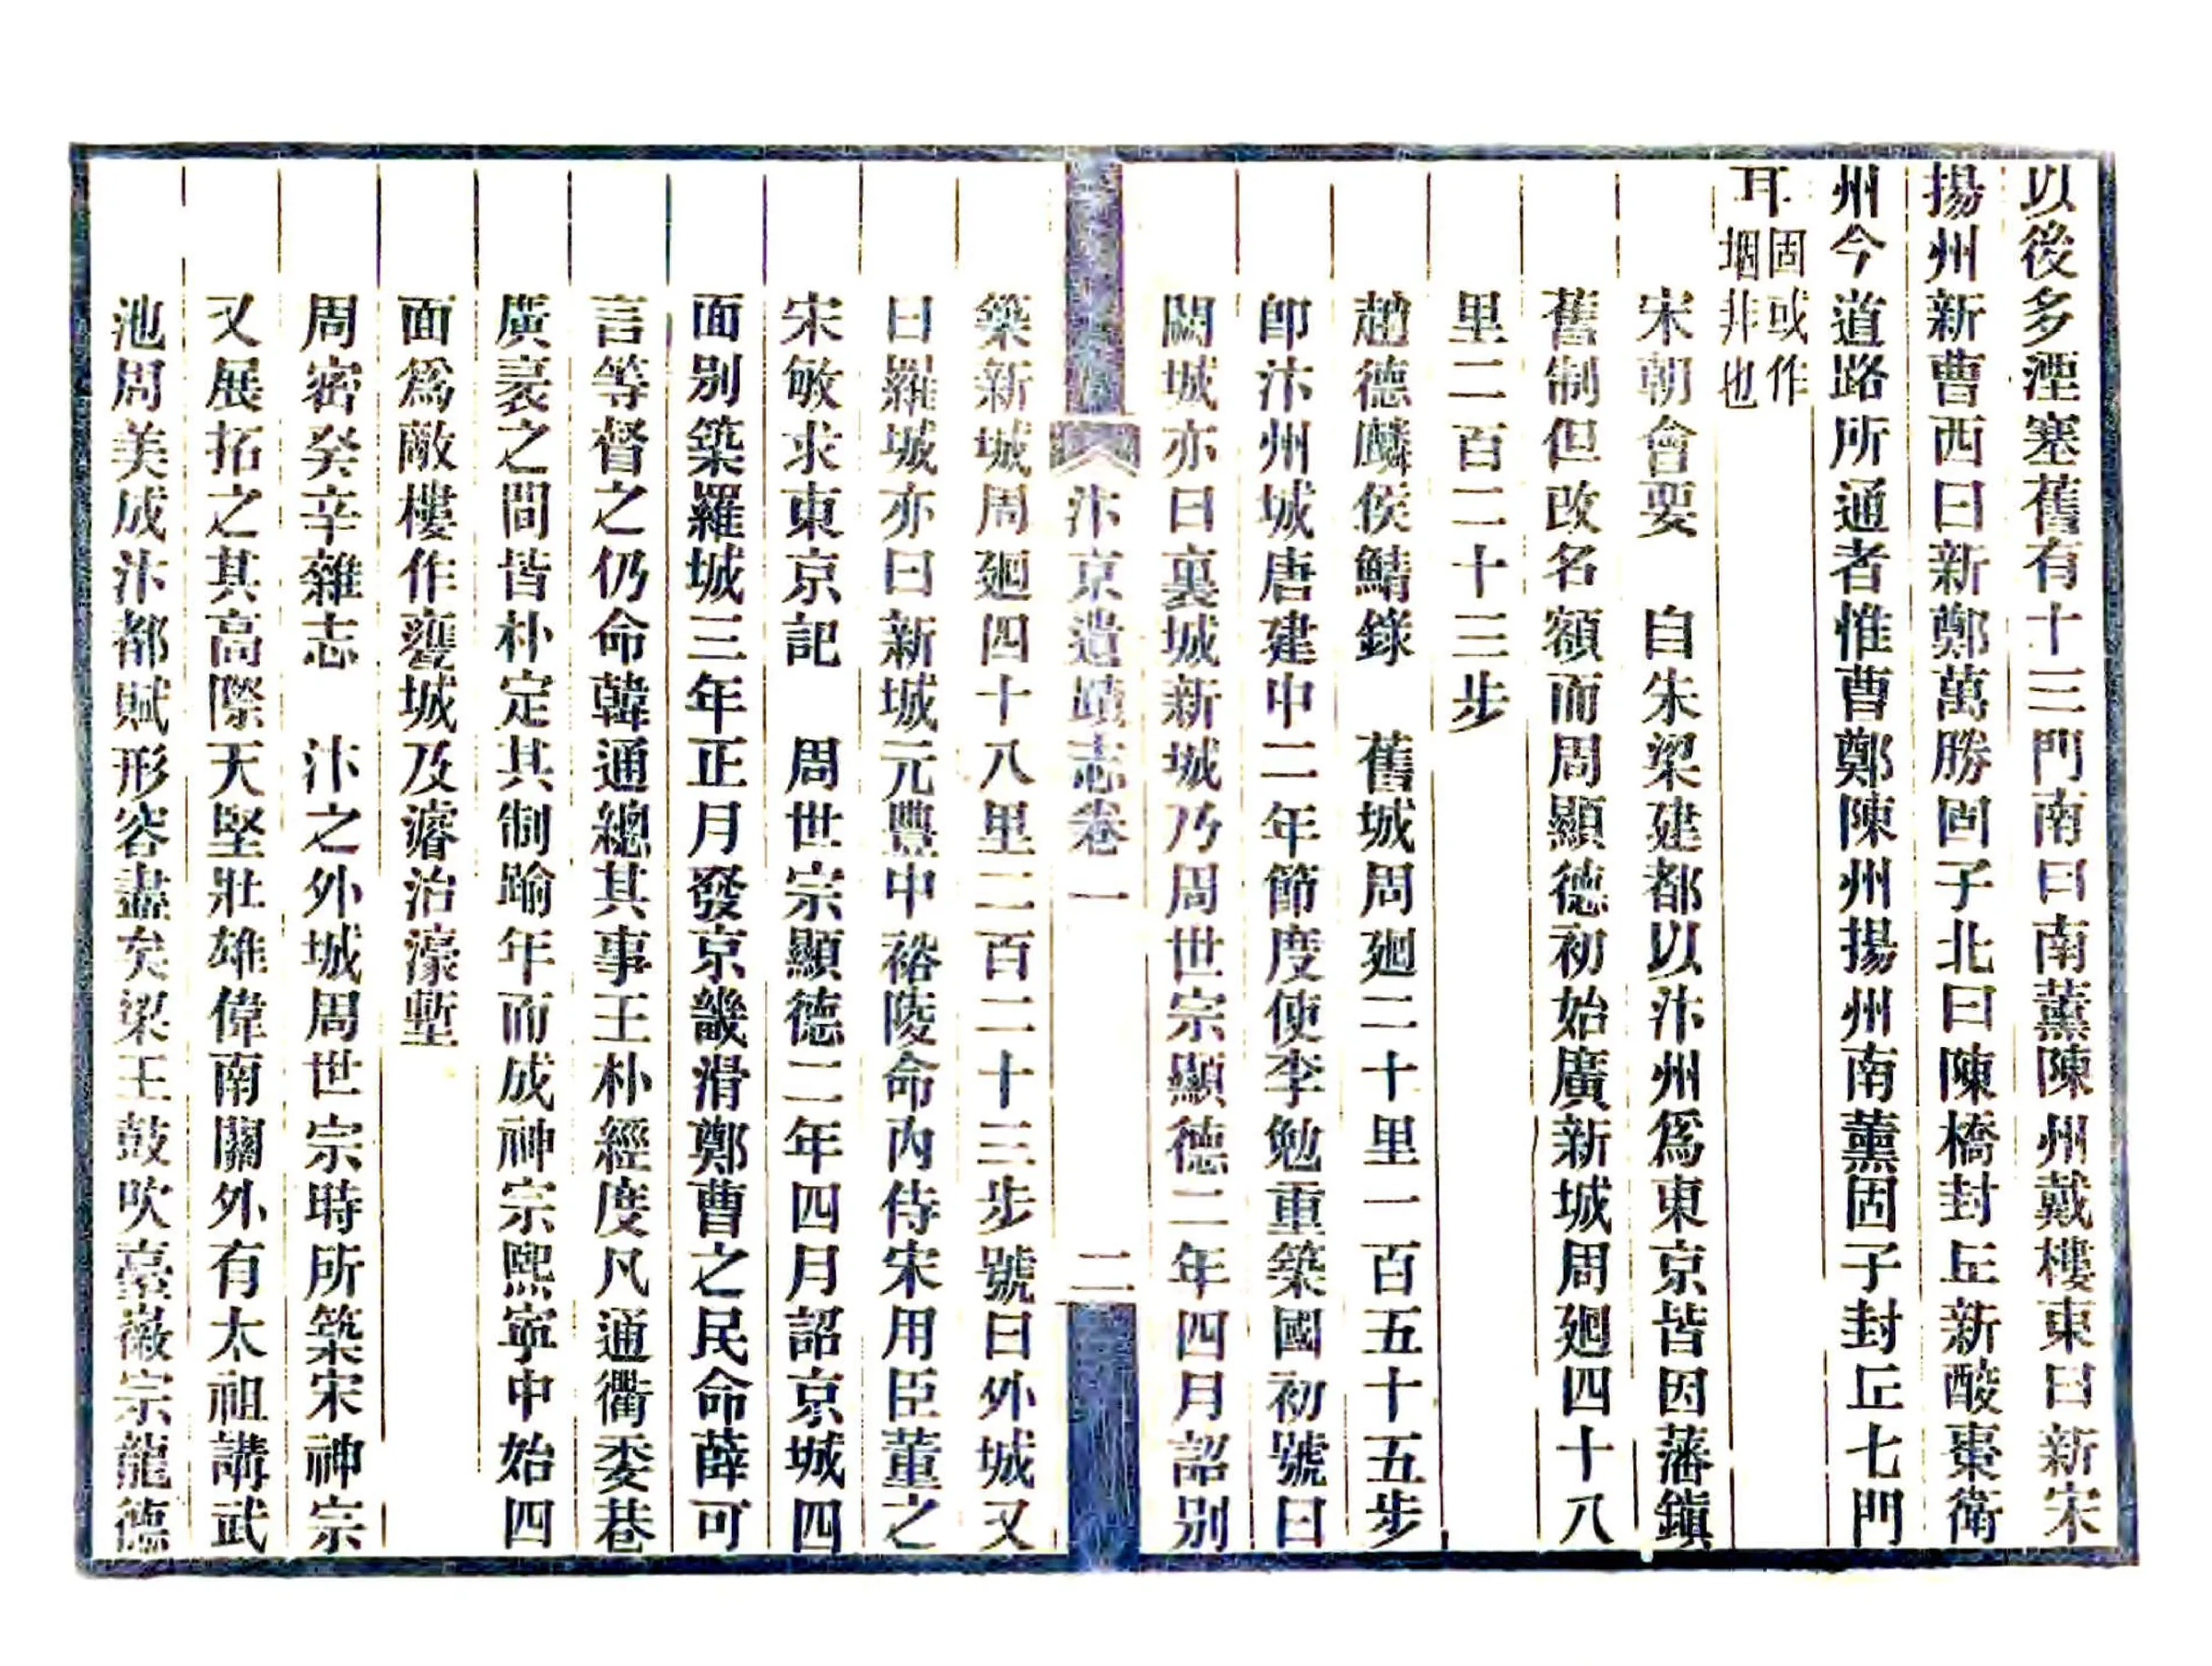 以後多湮塞舊有十三門南曰南薰陳州戴樓東曰新宋
揚州新曹西曰新鄭萬勝固子北曰陳橋封丘新酸棗衛
州今道路所通者惟曹鄭陳州揚州南薰固子封丘七門
耳固或作堌非也
宋朝會要 自朱梁建都以汴州爲東京皆因藩鎭
舊制但改名額而周顯德初始廣新城周廻四十八
里二百二十三步
趙德麟侯鯖錄 舊城周廻二十里一百五十五步
卽汴州城唐建中二年節度使李勉重築國初號曰
闕城亦曰裏城新城乃周世宗顯德二年四月詔別
汴京遺蹟志卷一 二
築新城周廻四十八里二百二十三步號曰外城又
曰羅城亦曰新城元豐中裕陵命內侍宋用臣董之
宋敏求東京記 周世宗顯德二年四月詔京城四
面別築羅城三年正月發京畿滑鄭曹之民命薛可
言等督之仍命韓通總其事王朴經度凡通衢委巷
廣袤之間皆朴定其制踰年而成神宗熙寧中始四
面爲敵樓作甕城及濬治濠塹
周密癸辛雜志 汴之外城周世宗時所築宋神宗
又展拓之其高際天堅壯雄偉南關外有太祖講武
池周美成汴都賦形容盡矣梁王鼓吹臺徽宗龍德